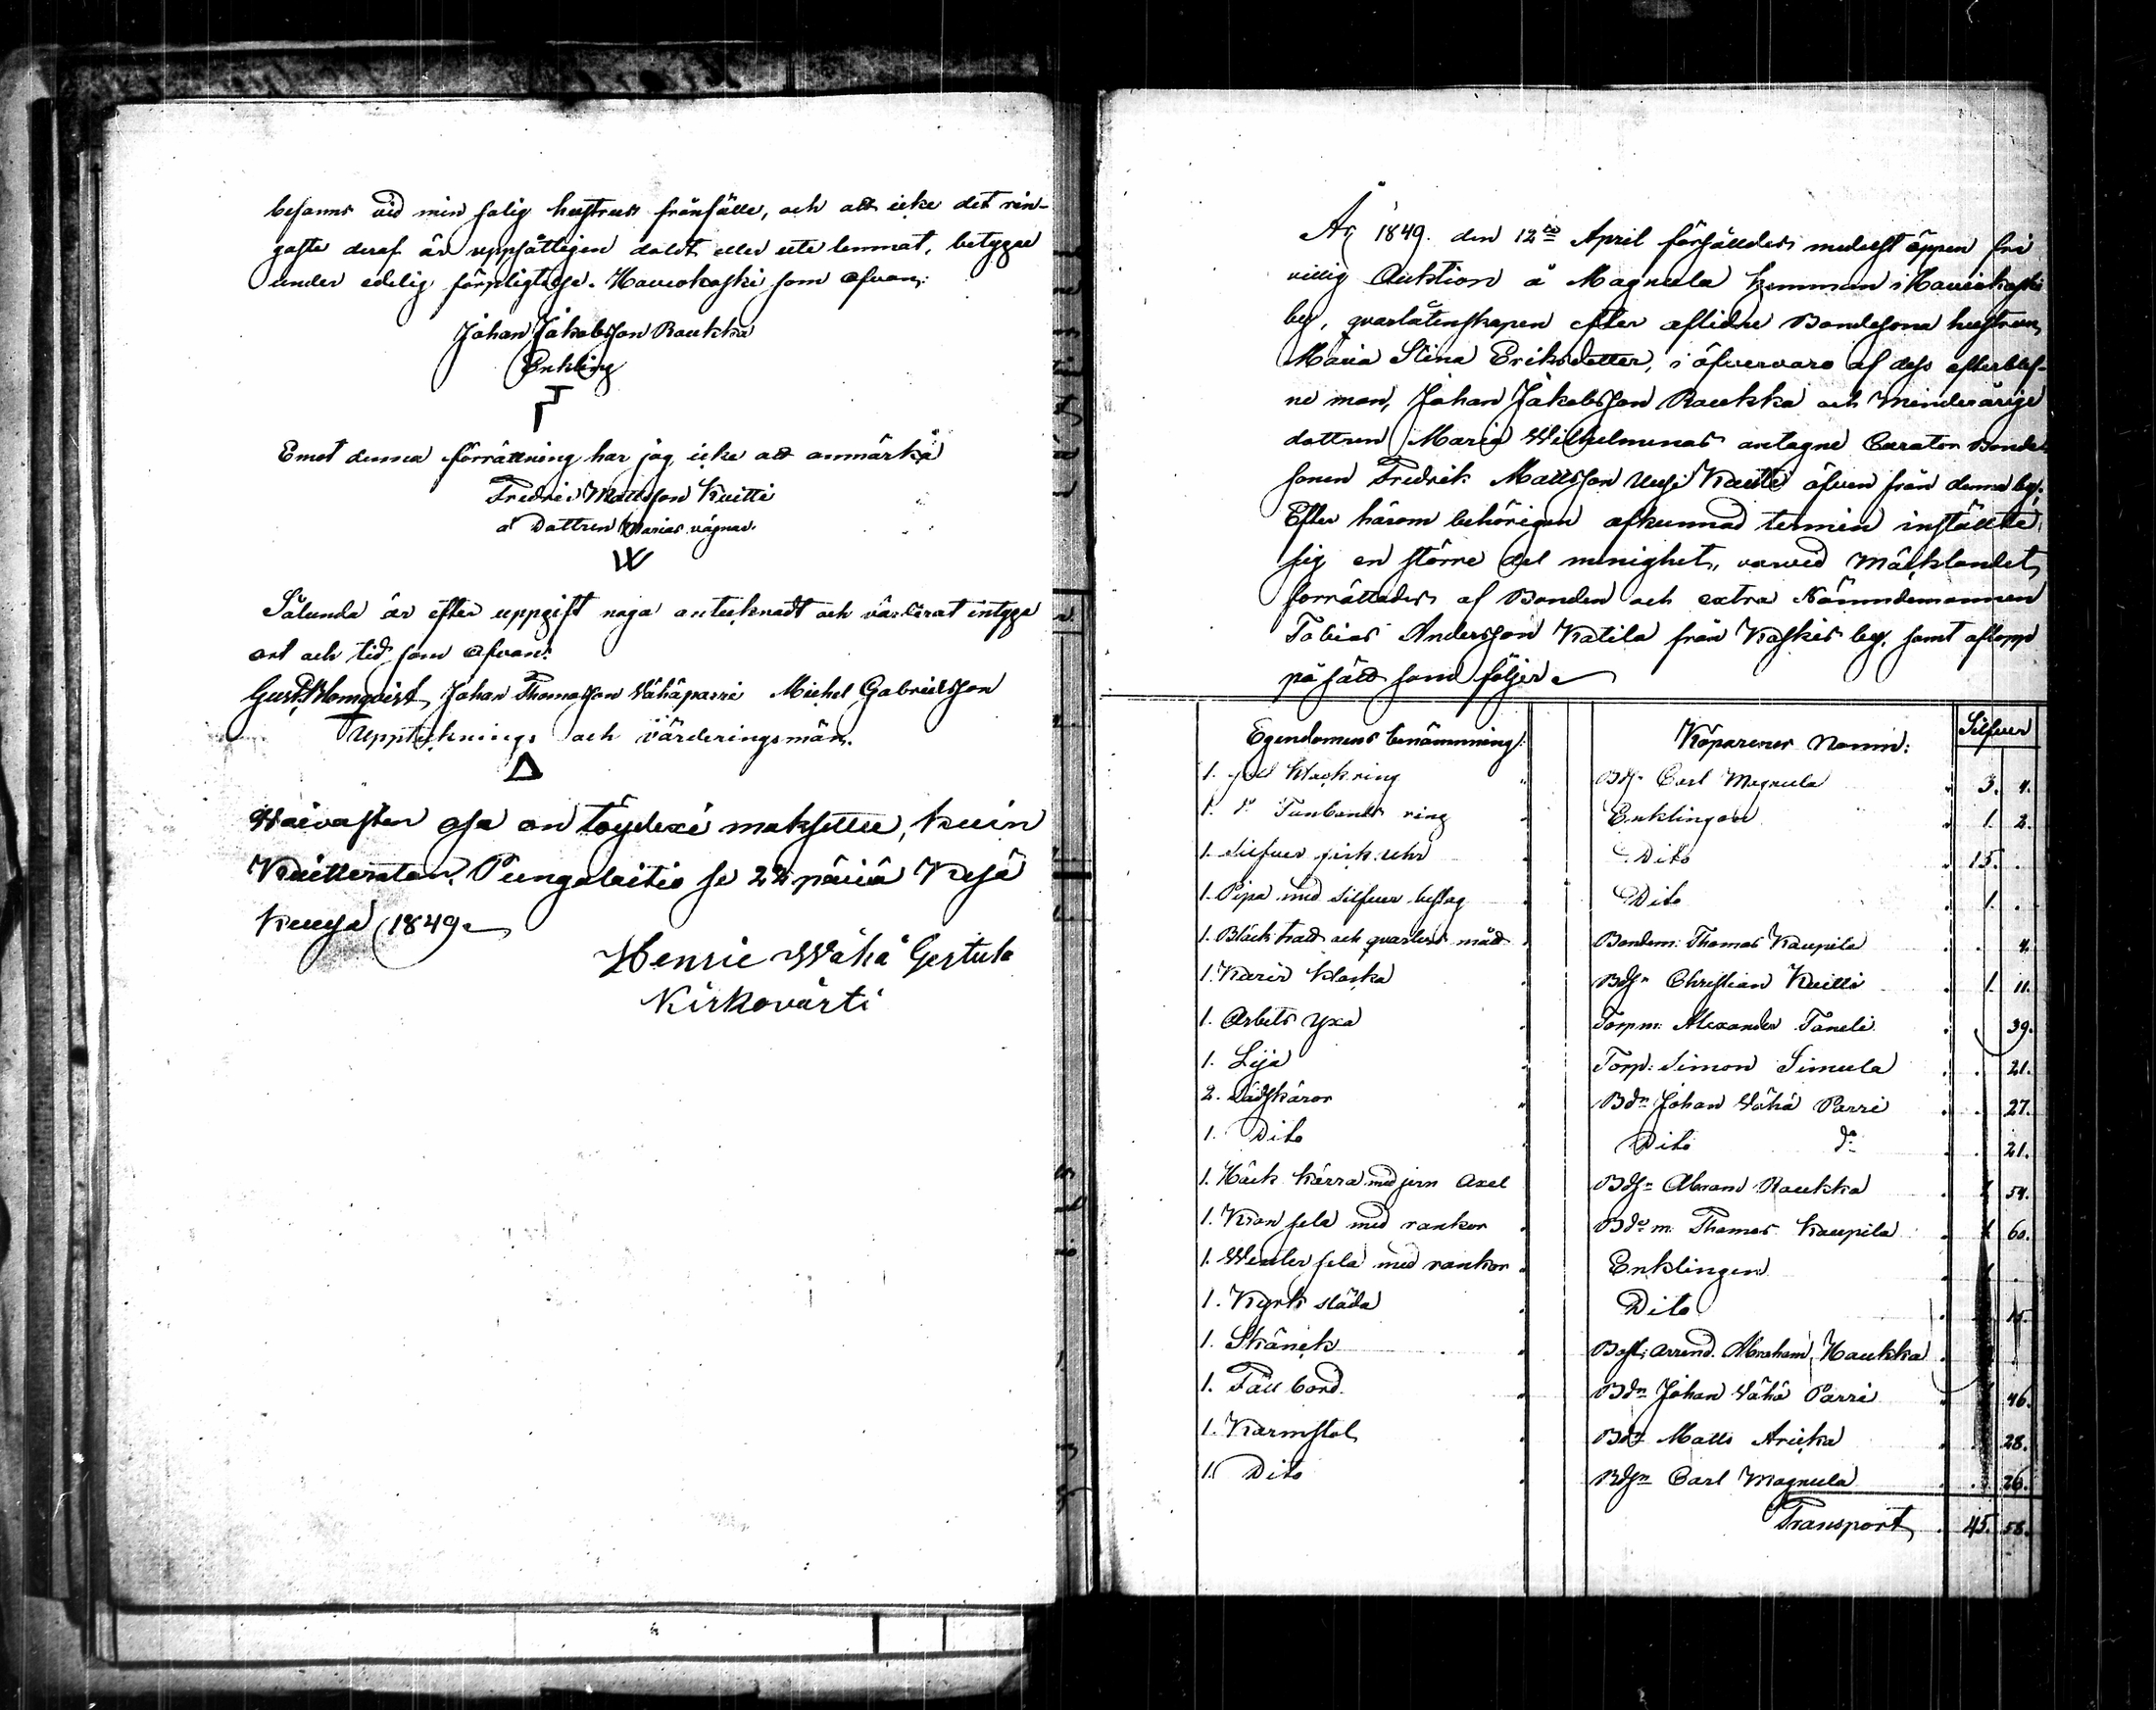 befanns vid min salig hustrus frånfälle, och att icke det rin-
gaste deraf är uppsåtligen doldt eller ute lemnat, betygar
under edelig förpligtelse. Hauvokoski som ofvan:
Johan Jakobsson Raukka
Enkling
Emot denna förrättning har jag icke att anmärka
Fredric Mattsson Kuitti
å Dottren Marias vägnar.
Sålunda är efter uppgift noga antecknadt och värderat intyga
ort och tid som ofvan:
Gust. Blomqvist Johan Thomasson Vähäparri Michel Gabrielsson
Upptecknings och värderingsmän.
Waivasten osa on töydexi maksettu, kuin
Kuitteratan. Pungalaitio se 22 päiviä Kesä
kuusa 1849.
Henric Wähä Gertula
Kirkovärti
År 1849. den 12te April försålldes medelst öppen fri
villig Auktion å Magnula hemman i Hauvokoski
by, qvarlåtenskapen efter aflidne Bondesona hustrun
Maria Stina Eriksdotter, i öfvervaro af dess efterblef-
ne man, Johan Jakobsson Raukka och minderårige
dottren Maria Wilhelminas antagne Curator Bonde
sonen Fredrik Mattsson Uusi Kuitti äfven från denna by.
Efter härom behörigen afkunnad termin inställte
sig en större del menighet, varvid Mäcklandet
förrättades af Bonden och extra Nämndemannen
Tobias Andersson Katila från Koskis by, samt aflopp
på sätt som följer
Egendomens benämning: Köparenes namn: Silfver
1. st Klockring Bdsn Carl Magnula 3. 4.
1. do Tunbands ring Enklingen 1. 2.
1. Silfver fick uhr Dito 15. .
1. Pipa med silfver beslag Dito 1. .
1. Bläck tratt och qvarters mått Bondem: Thomas Kaupila . 4.
1. Karir klocka Bdsn Christian Kuitti 1. 11.
1. Arbets yxa Torpm: Alexander Taneli . 39.
1. Lija Torp: Simon Simula . 21.
2. Lidskäror Bdn Johan Vähä Parri . 27.
1. Dito Dito do . 21.
1. Häck kärra med jern axel Bdsn Abram Raukka 54.
1. Kran sela med rankor Bde m: Thomas Kaupila 60.
1. Wenler sela med rankor Enklingen .
1. Kyrk släda Dito 15
1. Skänck Arrend. Abraham Haukka .
1. Fäll bord Bdn Johan Vähä Parri 46.
1. Karmstol Matts Aricka 28.
1. Dito Bdsn Carl Magnula . 26.
Transport 45. 58.